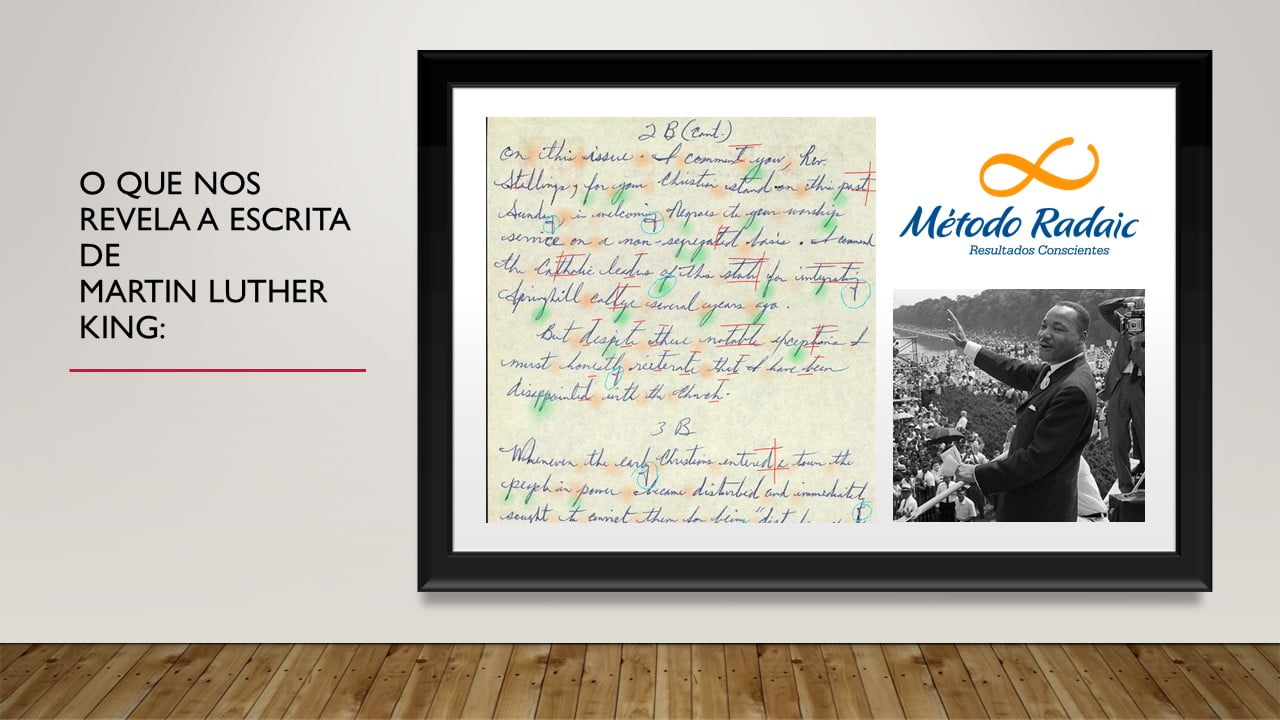 O QUE NOS
REVELA A ESCRITA
DE
MARTIN LUTHER
KING:
2 B (cont.)
on this issue. I commend you, Rev.
Stallings, for your Christian stand on this past
Sunday, in welcoming Negroes to your worship
service on a non-segregated basis. I commend
the Catholic leaders of this state for integrating
Springhill college several years ago.
But despite these notable exceptions I
must honestly reiterate that I have been
disappointed with the church.
3 B
Whenever the early Christians entered a town the
people in power became disturbed and immediately
sought to convict them for being "
Método Radaic
Resultados Conscientes